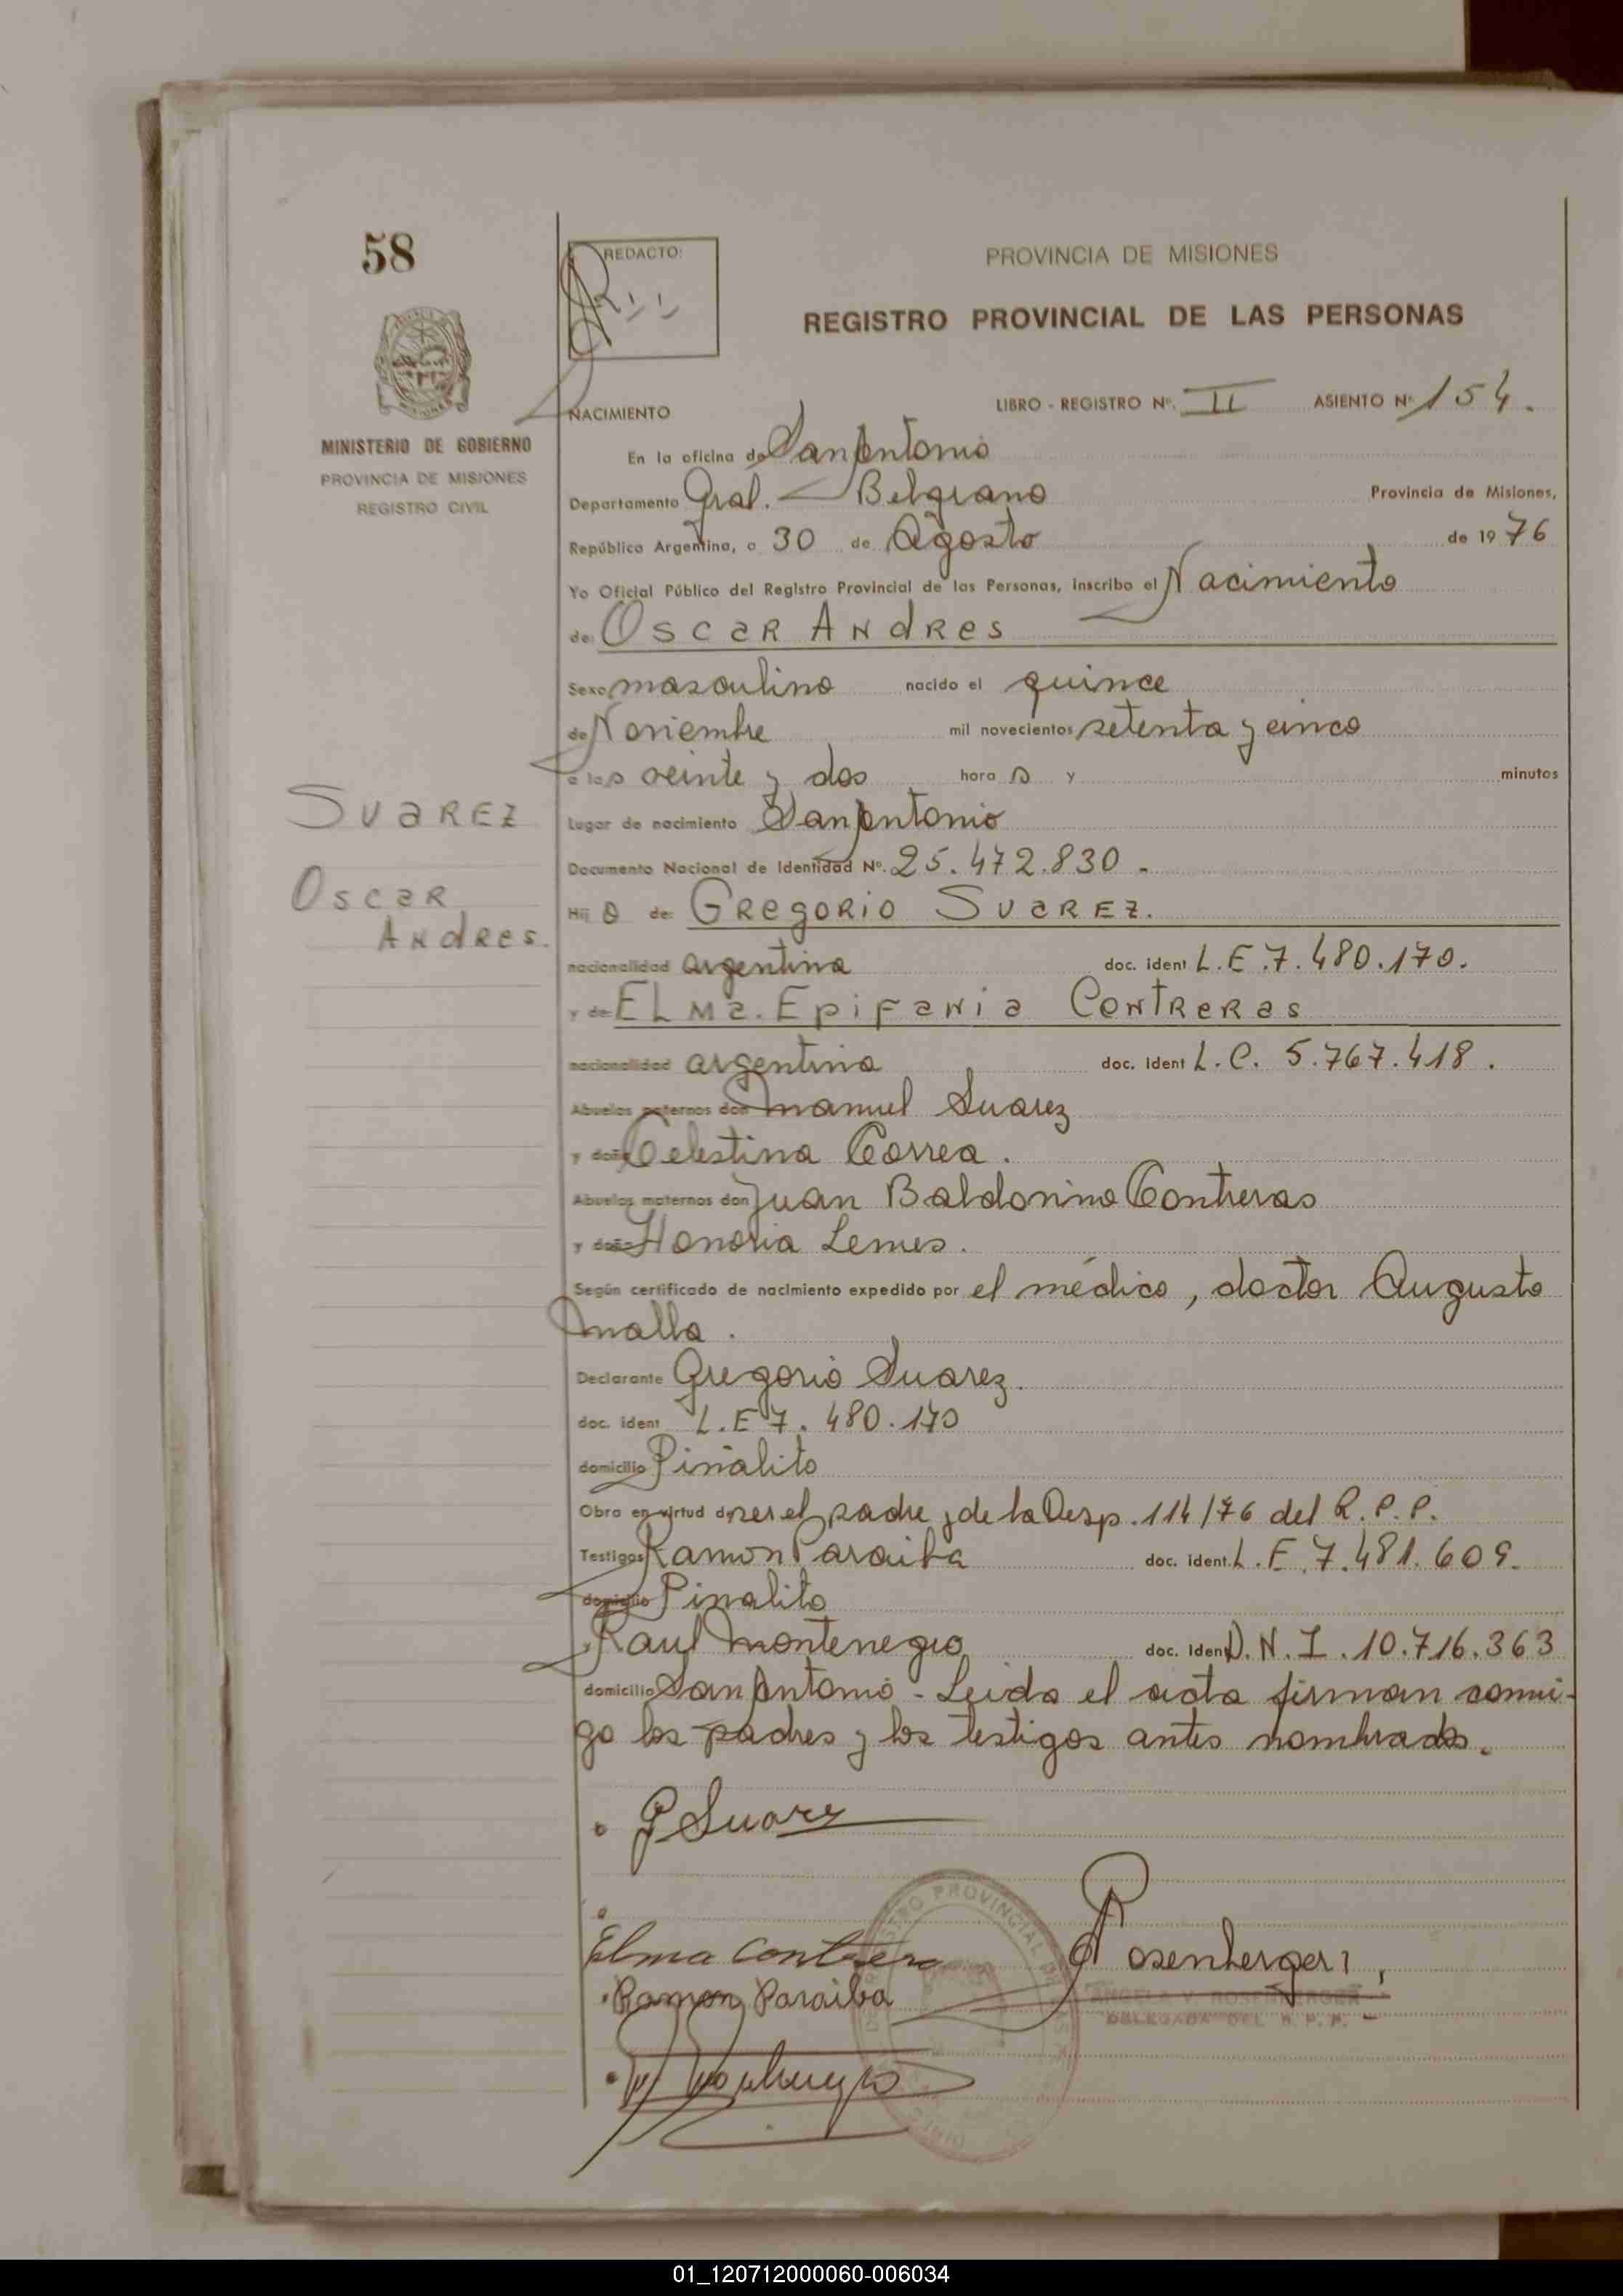 58
REDACTO:
PROVINCIA DE MISIONES
REGISTRO PROVINCIAL DE LAS PERSONAS
MINISTERIO DE GOBIERNO
PROVINCIA DE MISIONES
REGISTRO CIVIL
NACIMIENTO
LIBRO - REGISTRO Nº. II ASIENTO Nº 154.
En la oficina de San Antonio
Departamento Gral. Belgrano Provincia de Misiones,
República Argentina, a 30 de Agosto de 1976
Yo Oficial Público del Registro Provincial de las Personas, inscribo el Nacimiento
de: Oscar Andres
Sexo masculino nacido el quince
de Noviembre mil novecientos setenta y cinco
a las veinte y dos horas y minutos
Lugar de nacimiento San Antonio
Documento Nacional de Identidad Nº. 25.472.830.
Suarez
Oscar
Andres.
Hijo de: Gregorio Suarez.
nacionalidad argentina doc. ident L.E.7.480.170.
y de: Elma. Epifania Contreras
nacionalidad argentina doc. ident L.C. 5.767.418.
Abuelos paternos don Manuel Suarez
y doña Celestina Correa.
Abuelos maternos don Juan Baldovino Contreras
y doña Honoria Lemes.
Según certificado de nacimiento expedido por el médico, doctor Augusto
Malla.
Declarante Gregorio Suarez.
doc. ident L.E 7.480.170
domicilio Piñalito
Obra en virtud de ser el padre y de la Desp. 114/76 del R.P.P.
Testigos Ramon Paraiba doc. ident. L.E.7.481.609.
domicilio Pinalito
Raul Montenegro doc. ident D.N.I.10.716.363
domicilio San Antonio - Leida el acta firman conmi-
go los padres y los testigos antes nombrados.
G Suarez
Elma Contrera
Rosenberger
Ramon Paraiba
ANGELA V. ROSENBERGER
DELEGADA DEL R.P.P.
REGISTRO PROVINCIAL DE LAS
01_120712000060-006034